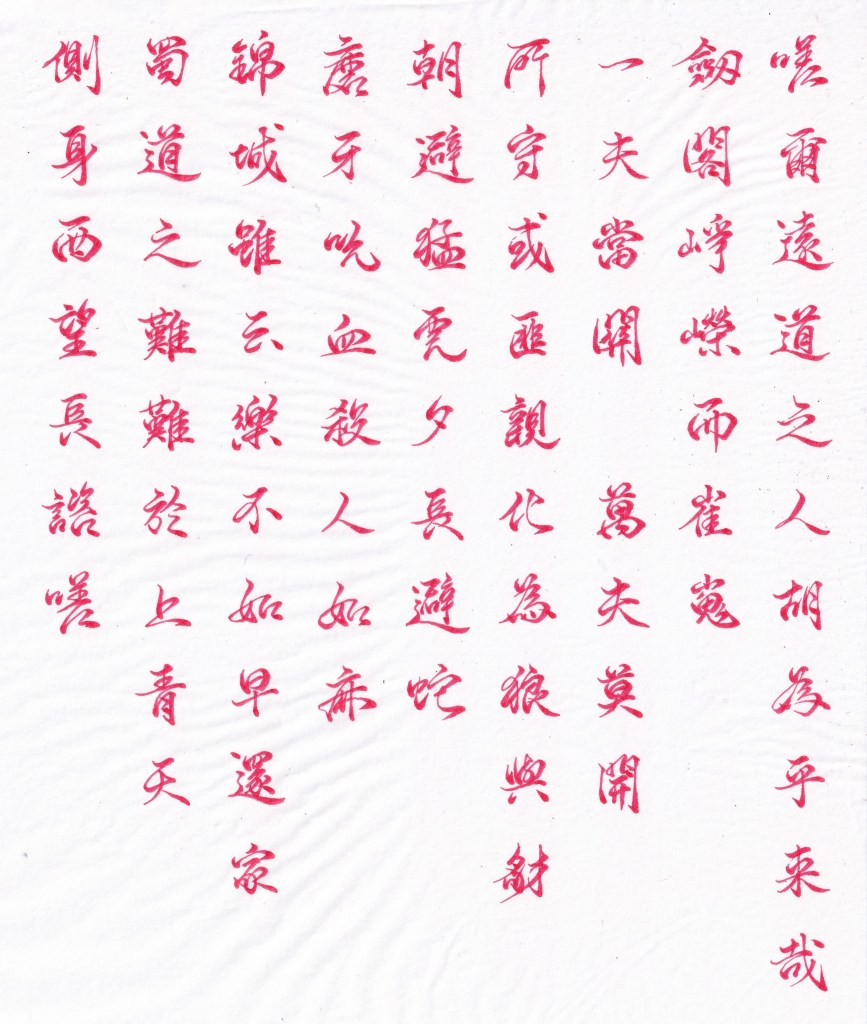 嗟爾遠道之人胡為乎來哉
劔閣崢嶸而崔嵬
一夫當關 萬夫莫開
所守或匪親化為狼與豺
朝避猛虎夕長避蛇
磨牙吮血殺人如麻
錦城雖云樂不如早還家
蜀道之難難於上青天
側身西望長諮嗟